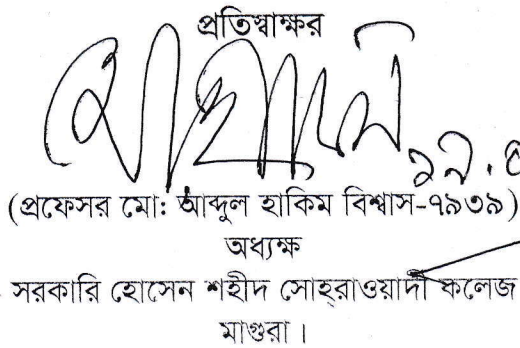 প্রতিস্বাক্ষর
(প্রফেসর মো: আব্দুল হাকিম বিশ্বাস-৭৯৩৯)
অধ্যক্ষ
সরকারি হোসেন শহীদ সোহ্‌রাওয়ার্দী কলেজ
মাগুরা ।